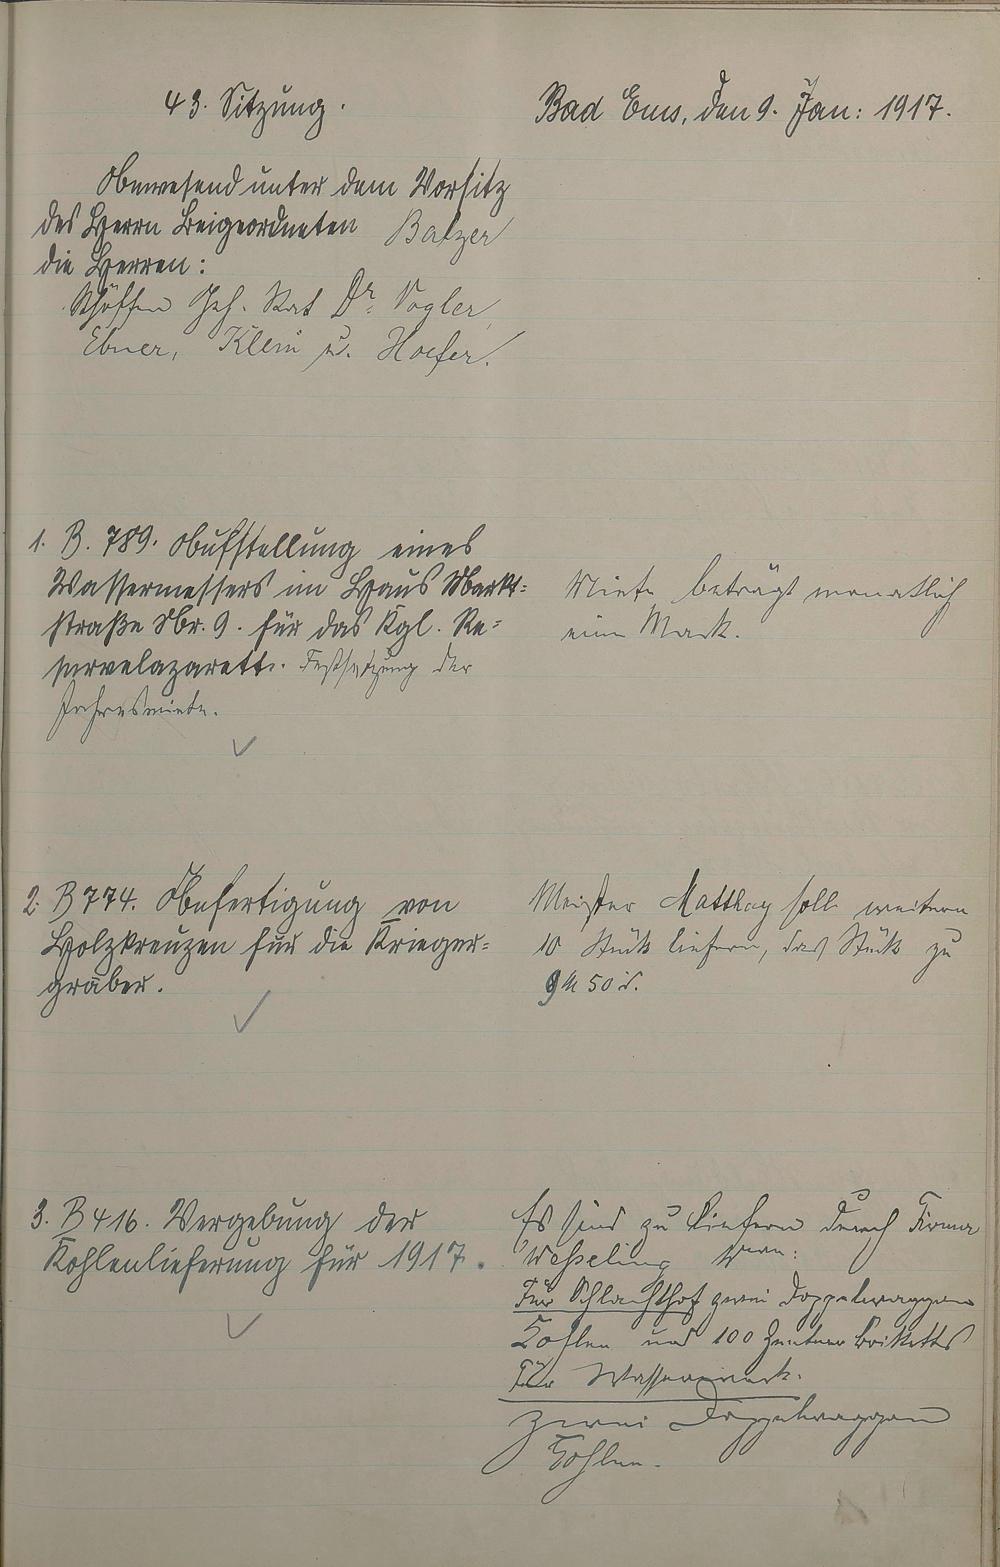 43. Sitzung.
Bad Ems, den 9. Jan: 1917.
Anwesend unter dem Vorsitz
des Herrn Beigeordneten Balzer
die Herren:
Schöffen Geh. Rat Dr. Vogler,
Ebner, Klein u. Hoefer.
1. B. 789. Aufstellung eines
Wassermessers im Haus Markt-
straße Nr. 9. für das Kgl. Re-
servelazarett. Festsetzung der
Jahresmiete.
Miete beträgt monatlich
eine Mark.
2. B 774. Anfertigung von
Holzkreuzen für die Krieger-
gräber.
Meister Matthay soll weitere
10 Stück liefern, das Stück zu
9 M 50 d.
3. B 416. Vergebung der
Kohlenlieferung für 1917.
Es sind zu liefern durch Firma
Wesseling
Für Schlachthof zwei Doppelwaggon
Kohlen und 100 Zentner Briketts
Für Wasserwerk.
zwei Doppelwaggon
Kohlen.